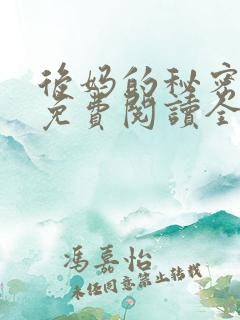 後妈的秘密
免費閱讀全
馮嘉怡
未任同意禁止转载